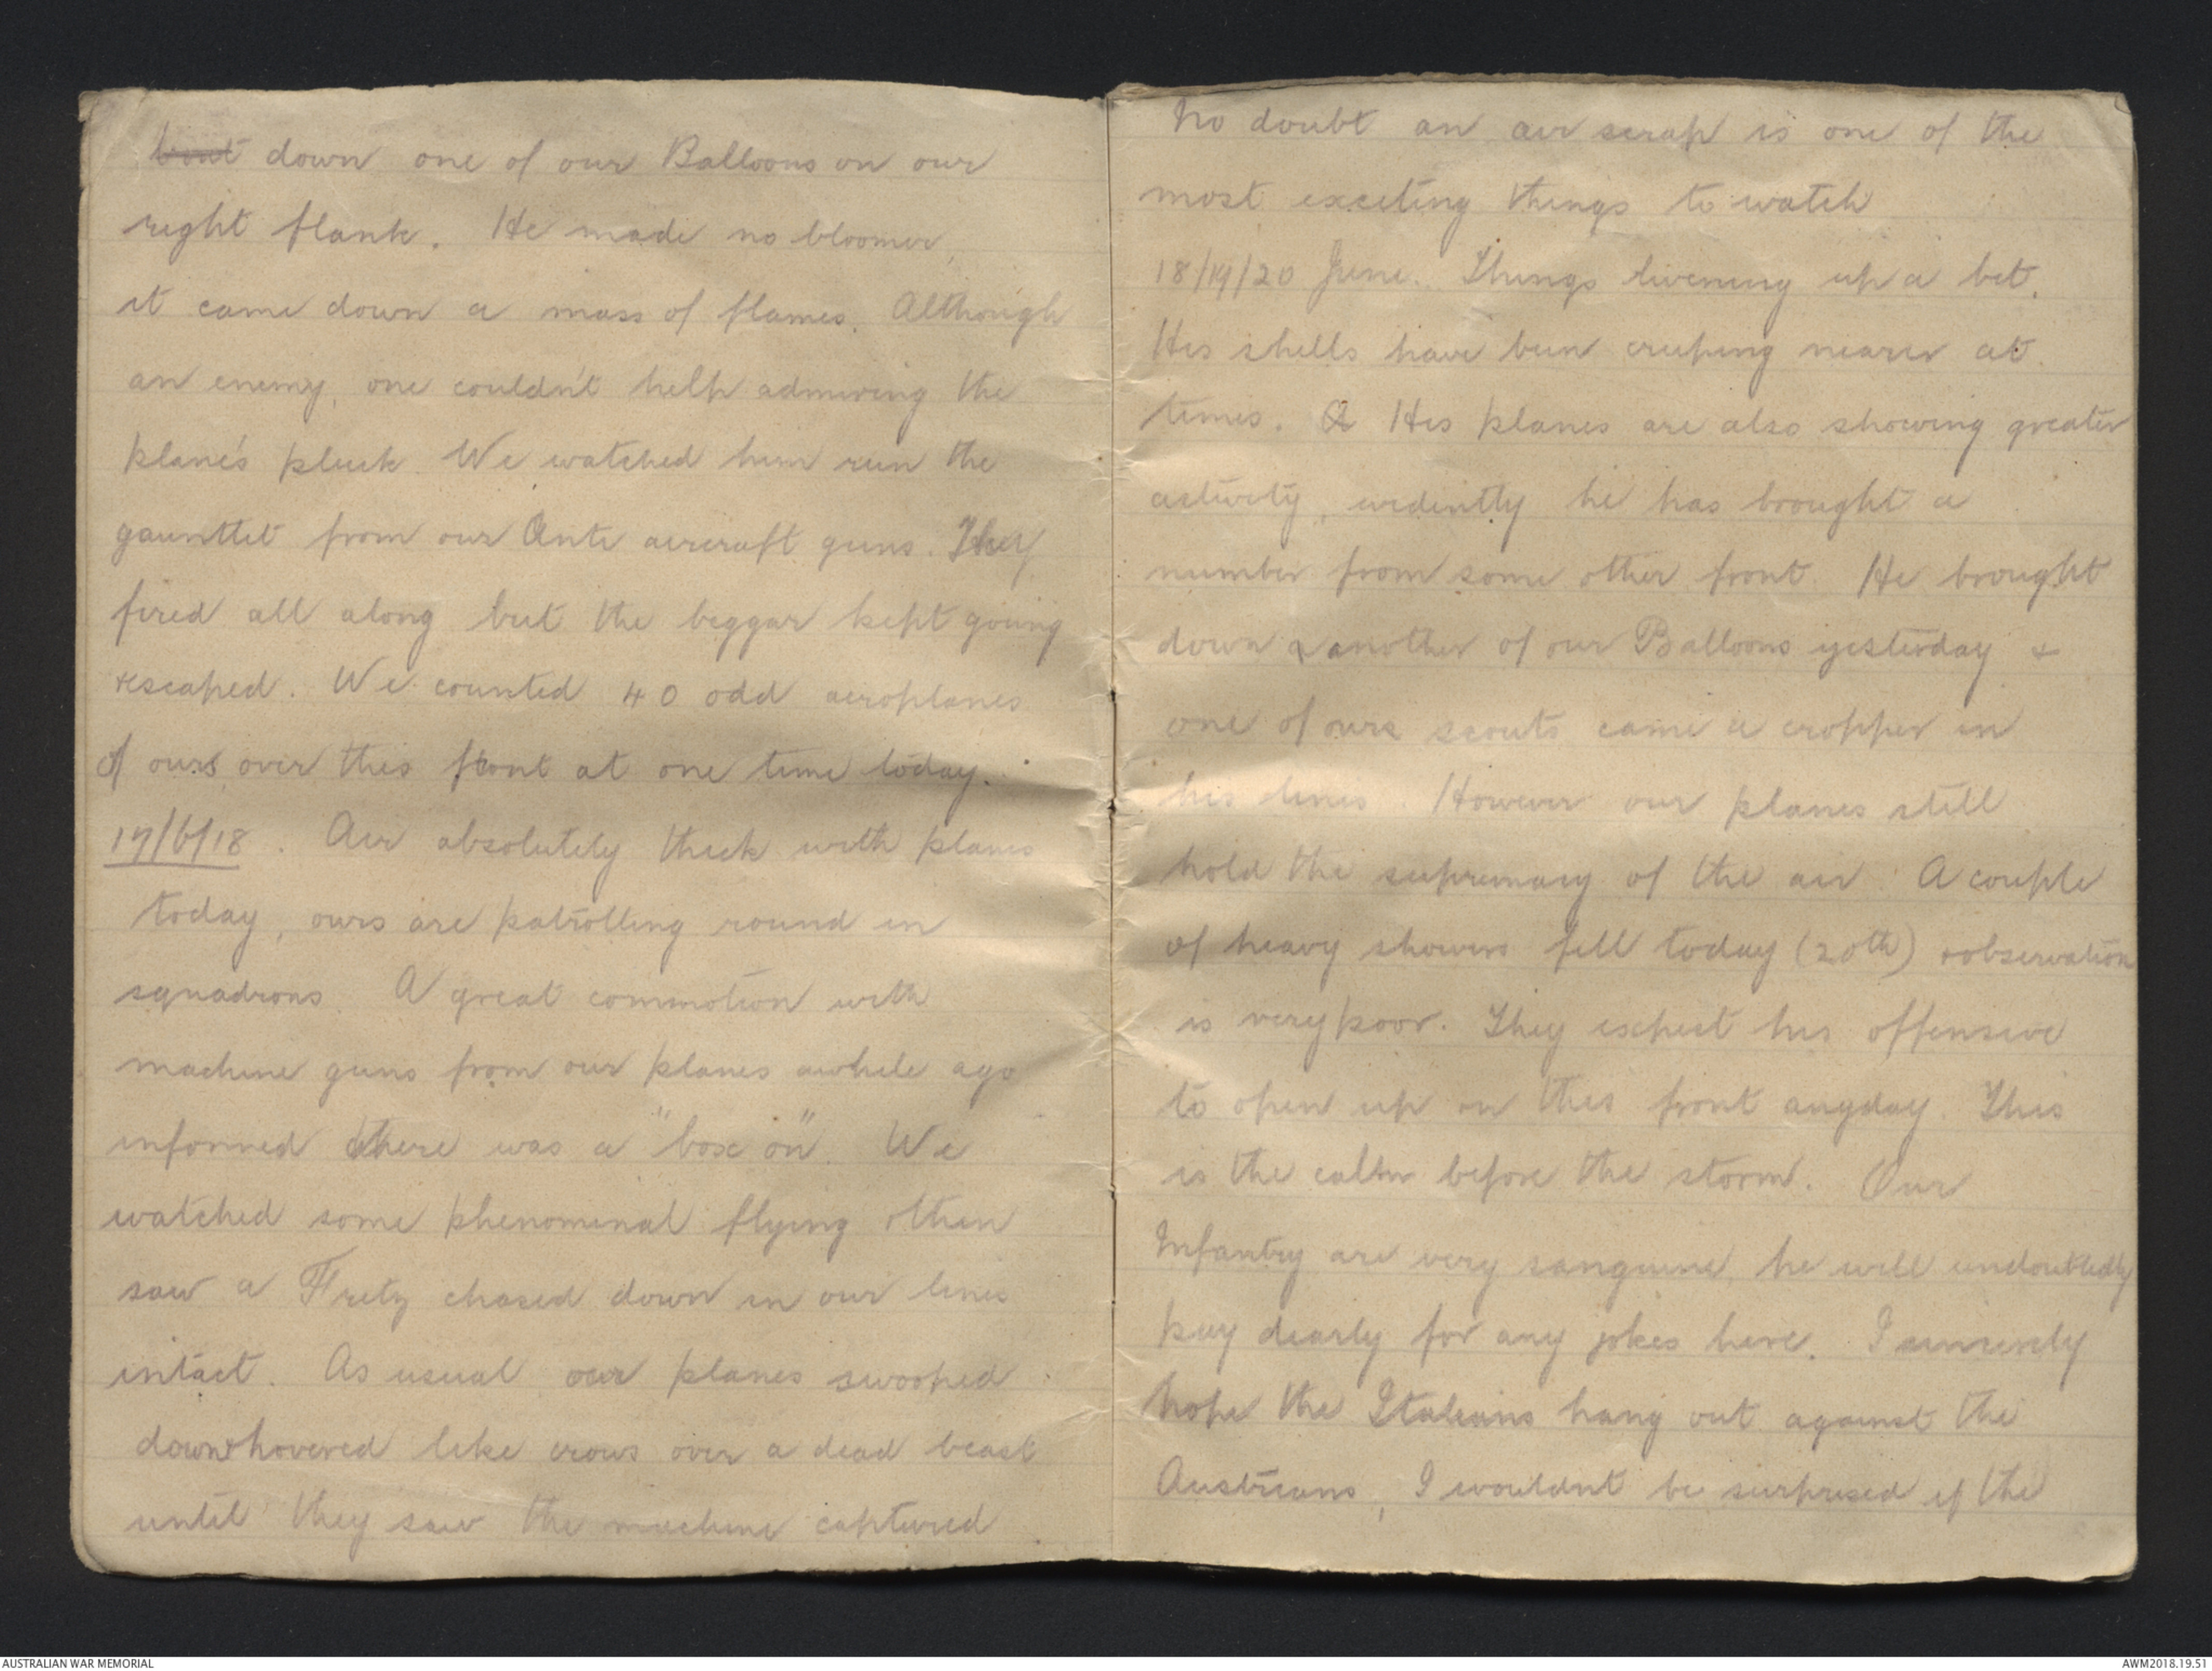 bout down one of our Balloons on our
right flank. He made no bloomer,
it came down a mass of flames. Although
an enemy, one couldn't help admiring the
plane's pluck. We watched him run the
gauntlet from our Anti aircraft guns. They
fired all along but the beggar kept going
& escaped. We counted 40 odd aeroplanes
of ours over this front at one time today.
17/6/18. Air absolutely thick with planes
today, ours are patrolling round in
squadrons. A great commotion with
machine guns from our planes awhile ago
informed there was a "box on". We
watched some phenomenal flying & then
saw a Fritz chased down in our lines
intact. As usual our planes swooped
down & hovered like crows over a dead beast
until they saw the machine captured.
No doubt an air scrap is one of the
most exciting things to watch
18/19/20 June. Things livening up a bit.
His shells have been creeping nearer at
times. His planes are also showing greater
activity, evidently he has brought a
number from some other front. He brought
down another of our Balloons yesterday &
one of ours scouts came a cropper in
his lines. However our planes still
hold the supremacy of the air. A couple
of heavy showers fell today (20th) & observation
is very poor. They expect his offensive
to open up on this front anyday. This
is the calm before the storm. Our
Infantry are very sanguine, he will undoubtedly
pay dearly for any jokes here. I sincerely
hope the Italians hang out against the
Austrians, I wouldn't be surprised if the
AUSTRALIAN WAR MEMORIAL
AWM2018.19.51